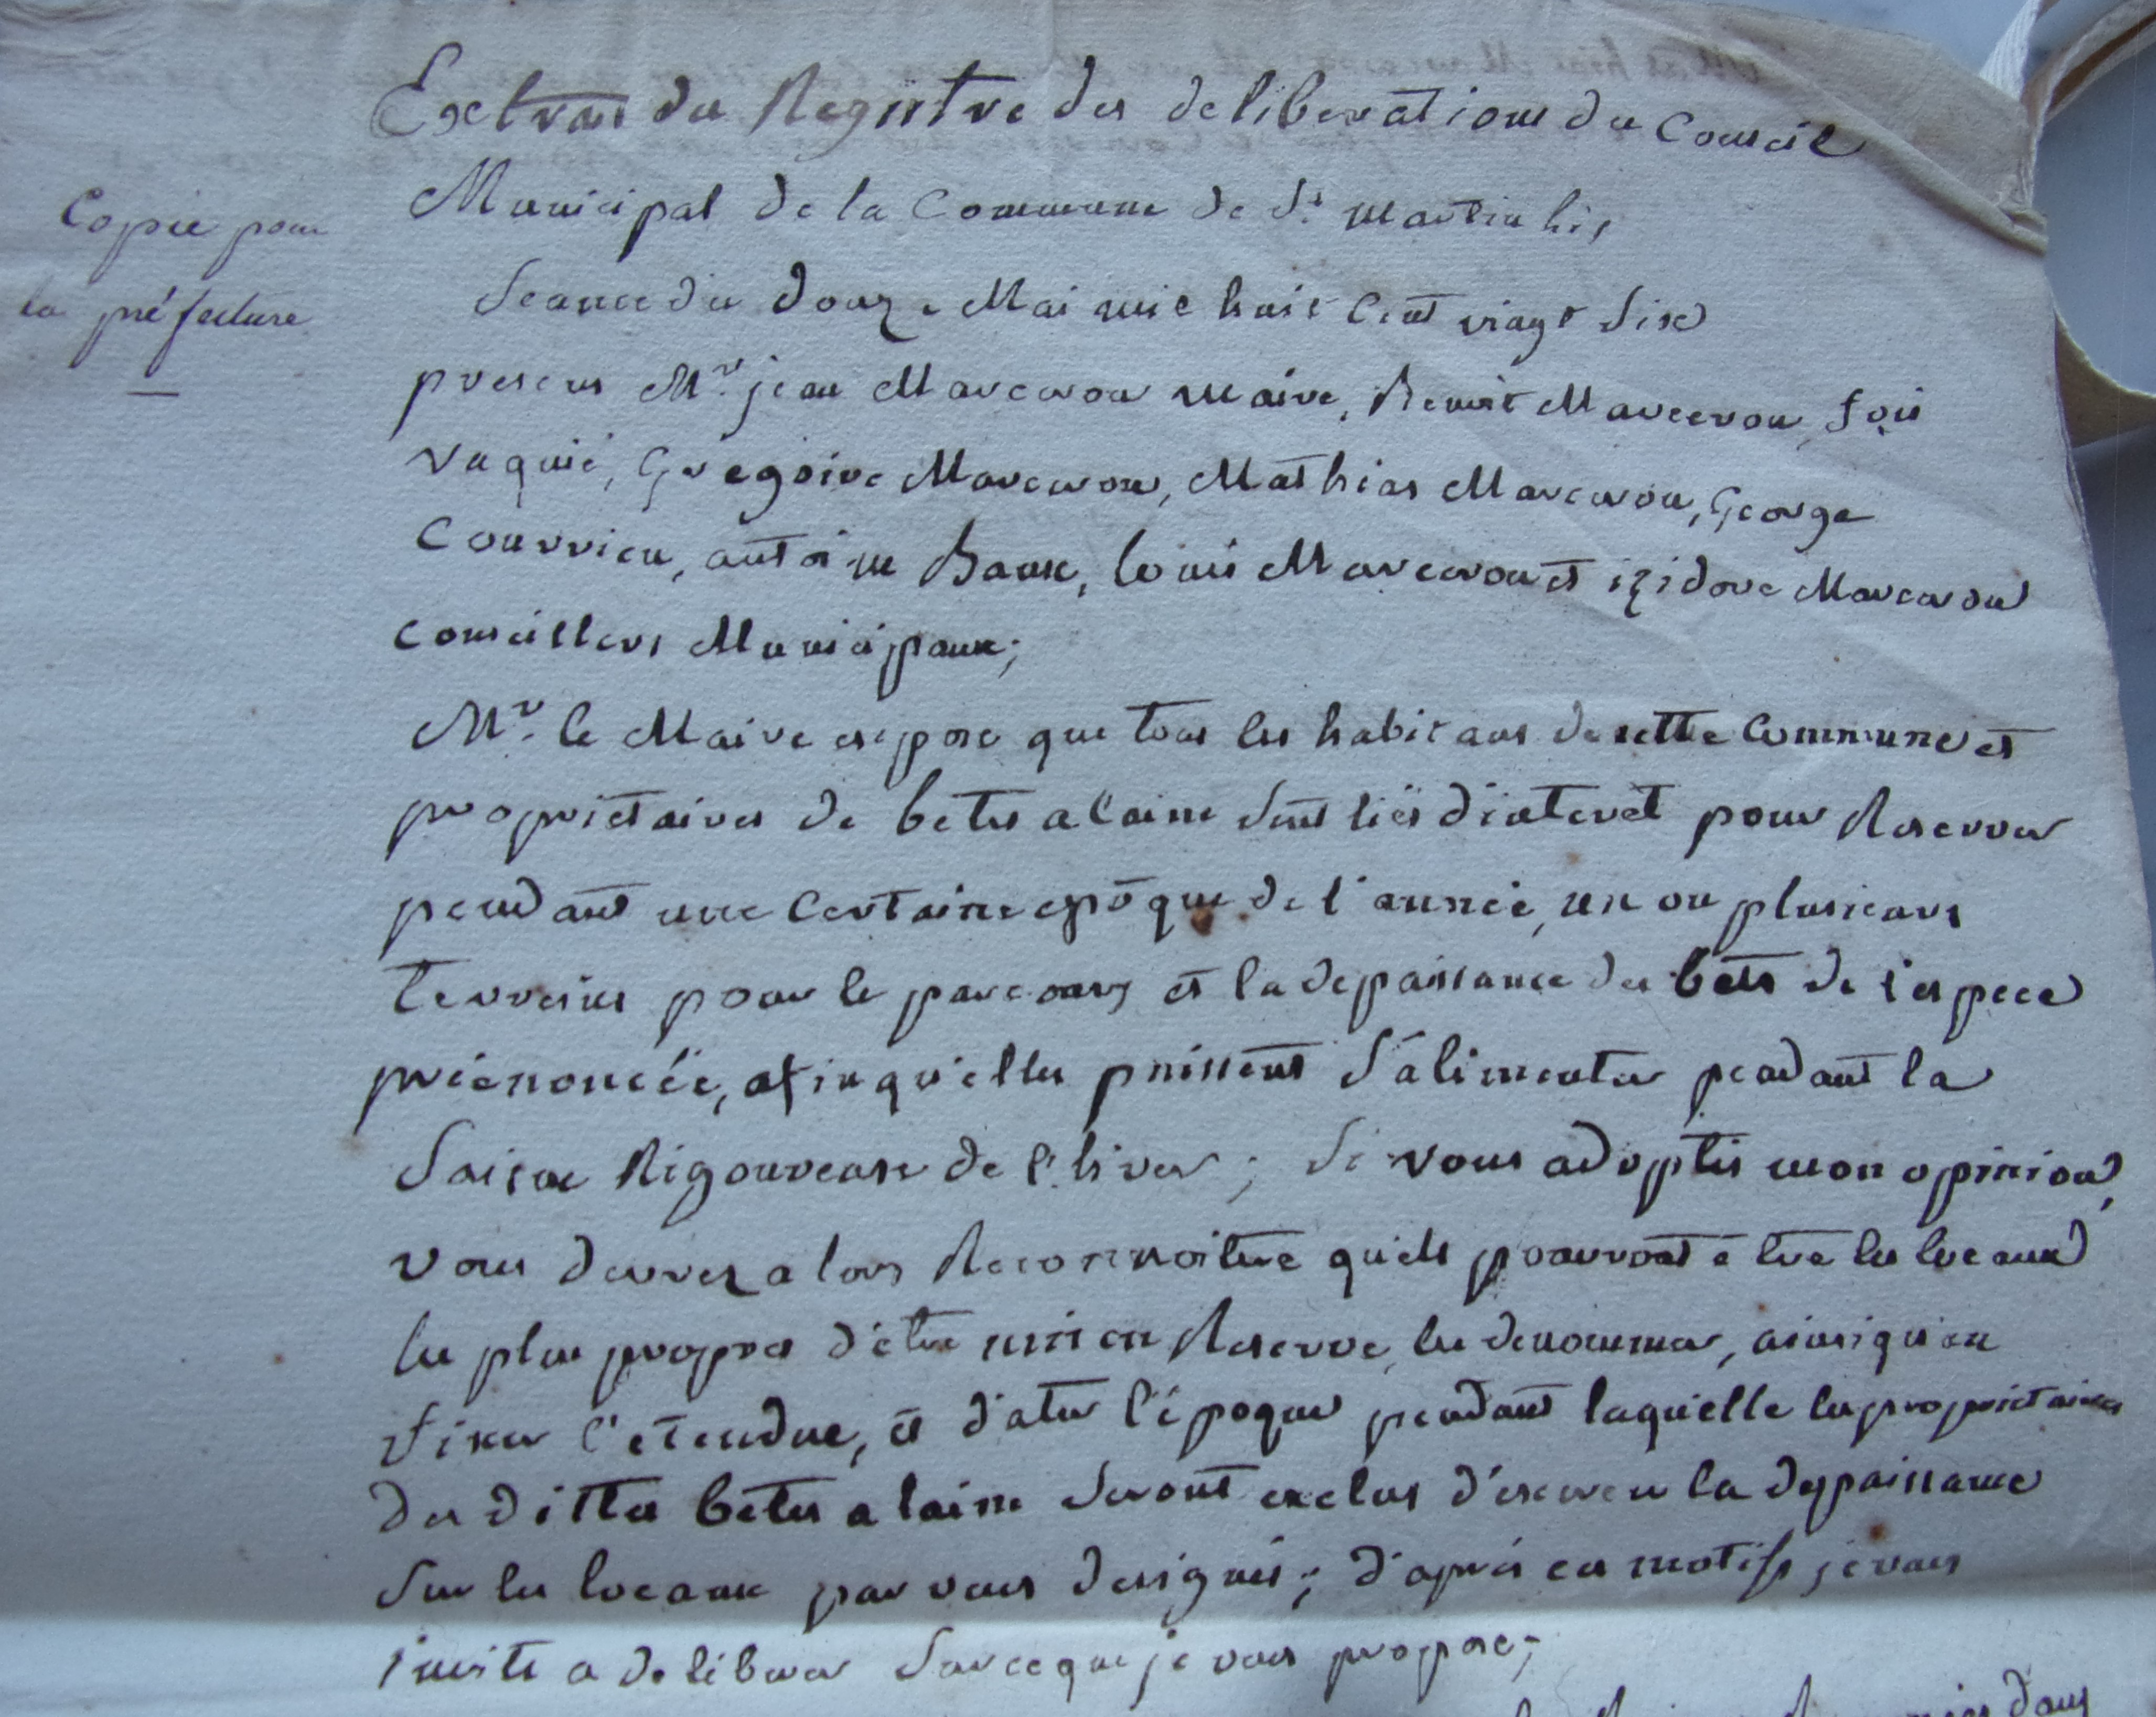 Extrait du Registre des deliberations du Conseil
Municipal de la Commune de St. martin lis,
Copie pour
la préfecture
Seance du douze Mai mil huit Cent vingt Six
presens Mr. jean Marcerou maire, Benoit Marcerou, fois
vaquié, Gregoire Marcerou, Mathias Marcerou, George
Courrieu, antoine Baux, louis Marcerou et izidore Marcerou
Conseillers Municipaux;
Mr. le Maire expose que tous les habitans de cette Commune et
proprietaires de betes a laine Sont liés d'interet pour Reserver
pendant une Certaine epoque de l'année, un ou plusieurs
terreins pour le parcours et la depaissance des betes de l'espece
préénoncée, afin qu'elles puissent S'alimenter pendant la
Saison Rigoureuse de l'hiver; Si vous adoptés mon opinion,
vous devrez alors Reconnoitre quels pourront être les locaux
les plus propres d'être mis en Reserve, les denommer, ainsi qu'en
fixer l'etendue, et dater l'époque pendant laquelle les proprietaires
des dittes betes a laine Seront exclus d'exercer la depaissance
Sur les locaux par vous designés; d'après ces motifs je vous
invite a deliberer Sur ce que je vous propose;
dans